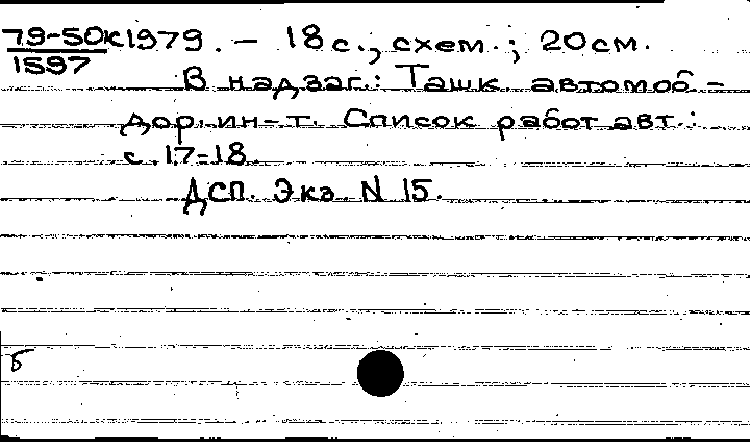 79-50к 1979. – 18 с., схем.; 20 см.
1597
В надзаг.: Ташк. автомоб-
дор. ин-т. Список работ авт.:
с. 17-18.
ДСП. Экз. N 15.
б